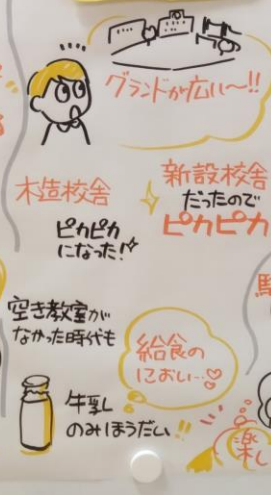 グランドが広い〜!!
木造校舎
ピカピカ
になった!
新設校舎
だったので
ピカピカ
空き教室が
なかった時代も
給食の
におい…♡
牛乳
のみほうだい!!
楽し